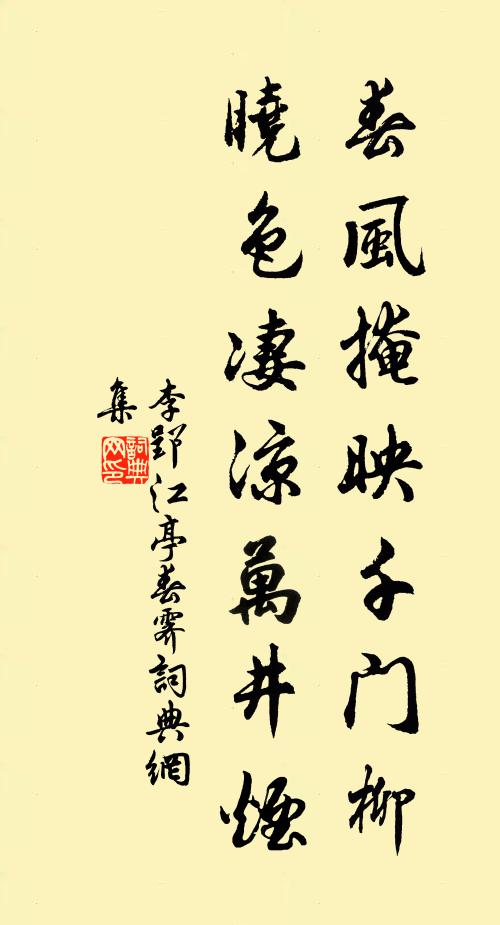 春風掩映千门柳
曉色凄涼萬井煙
李郢江亭春霽詞典網
集
詞典网印